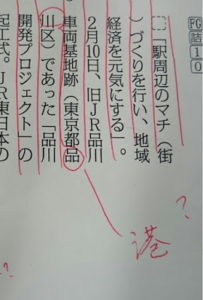 詰10
駅周辺のマチ（街
）づくりを行い、地域
経済を元気にする」。
2月10日、旧JR品川
車両基地跡（東京都品
川区）であった「品川
開発プロジェクト」の
起工式。JR東日本の
港
?
??